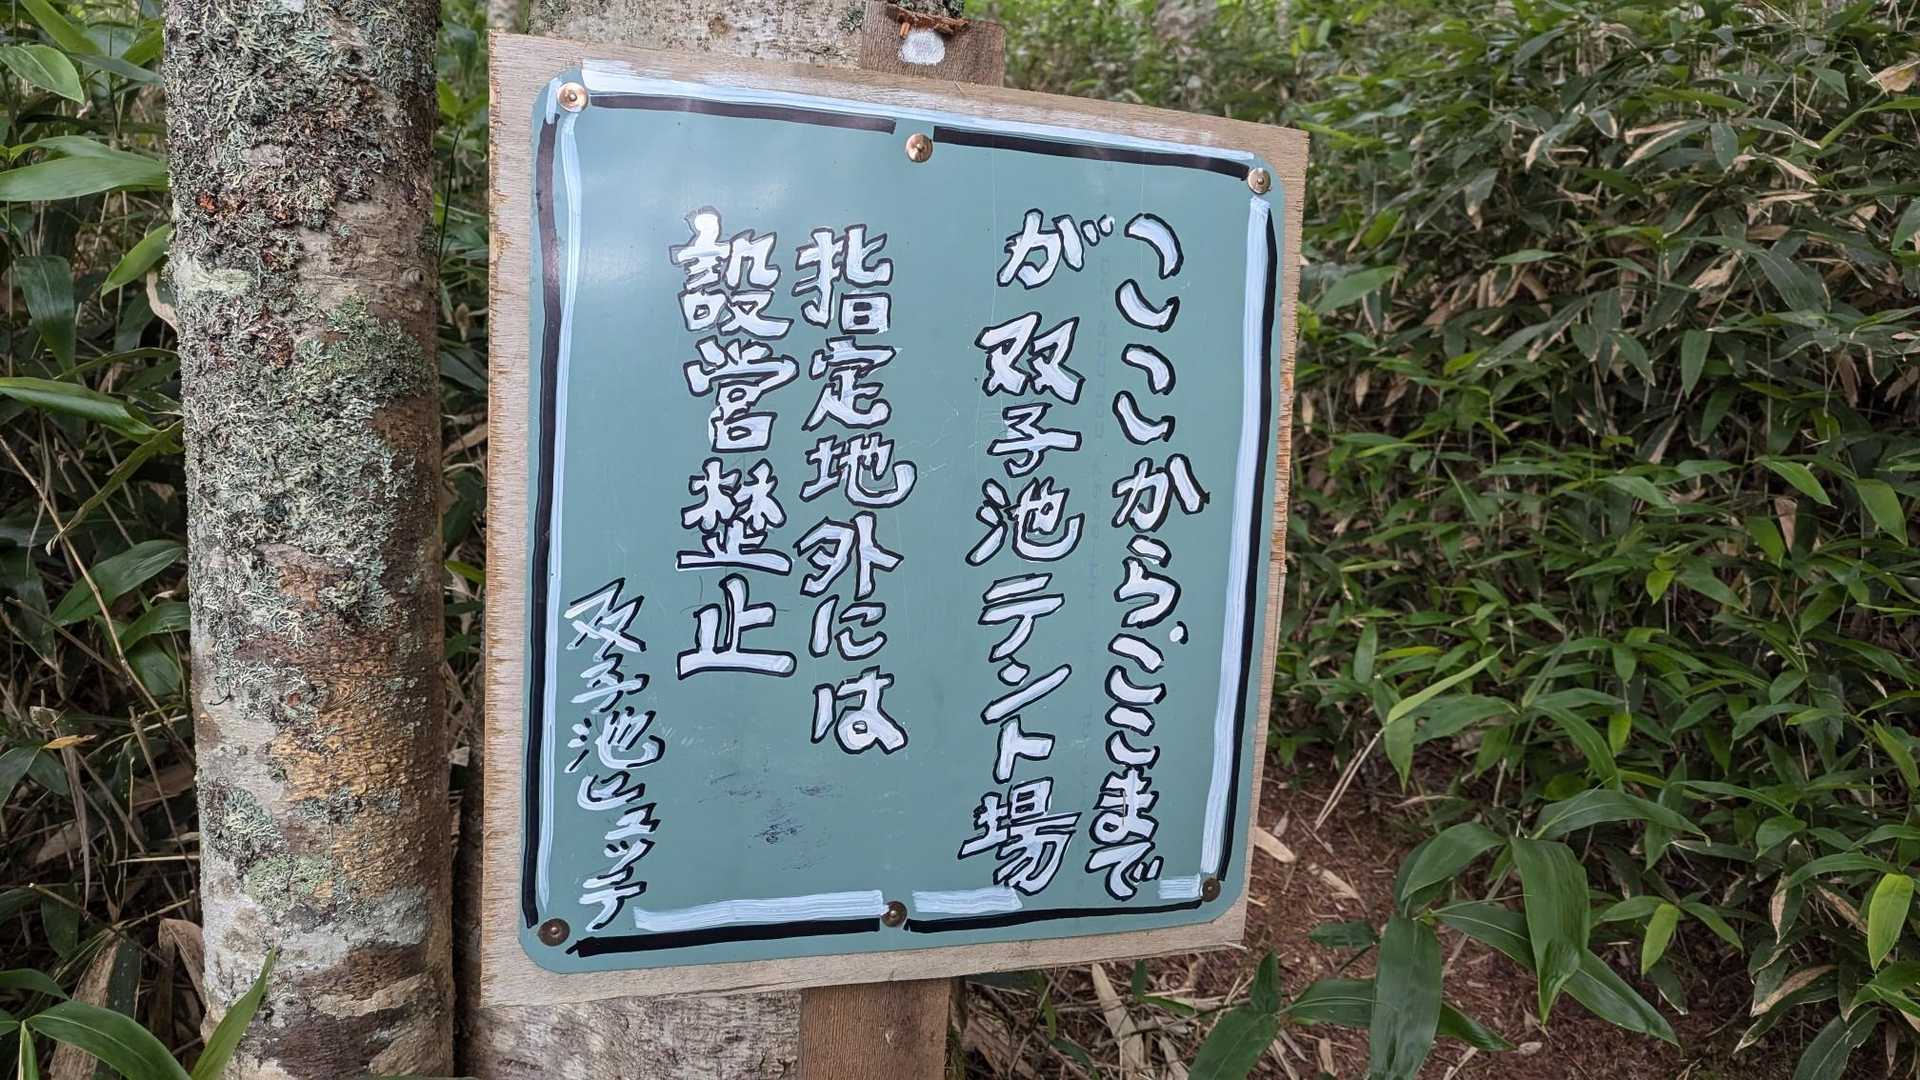 ここから、ここまで
が 双子池テント場
指定地外には
設営禁止
双子池ヒュッテ